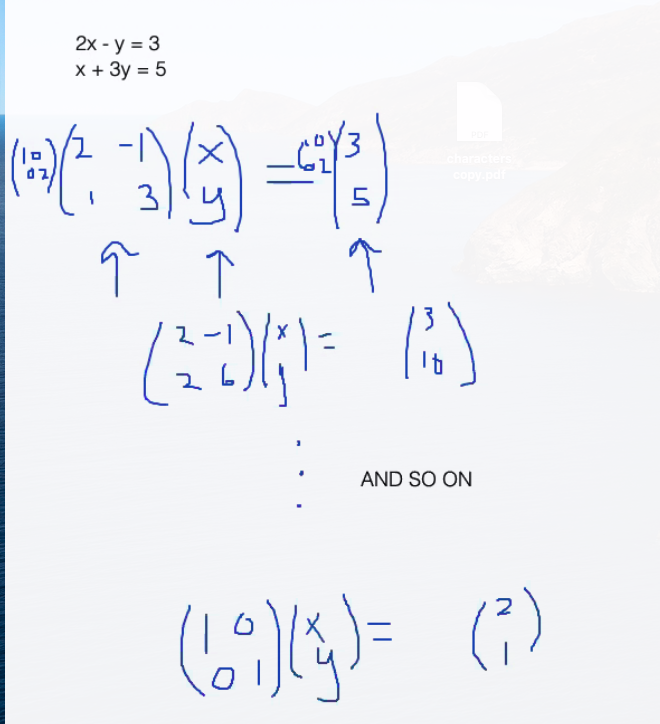 2x - y = 3
x + 3y = 5
(1 0; 0 2) (2 -1; 1 3) (x; y) = (1 0; 0 2) (3; 5)
↑ ↑ ↑
(2 -1; 2 6) (x; y) = (3; 10)
⋮
AND SO ON
(1 0; 0 1) (x; y) = (2; 1)
PDF
characters
copy.pdf